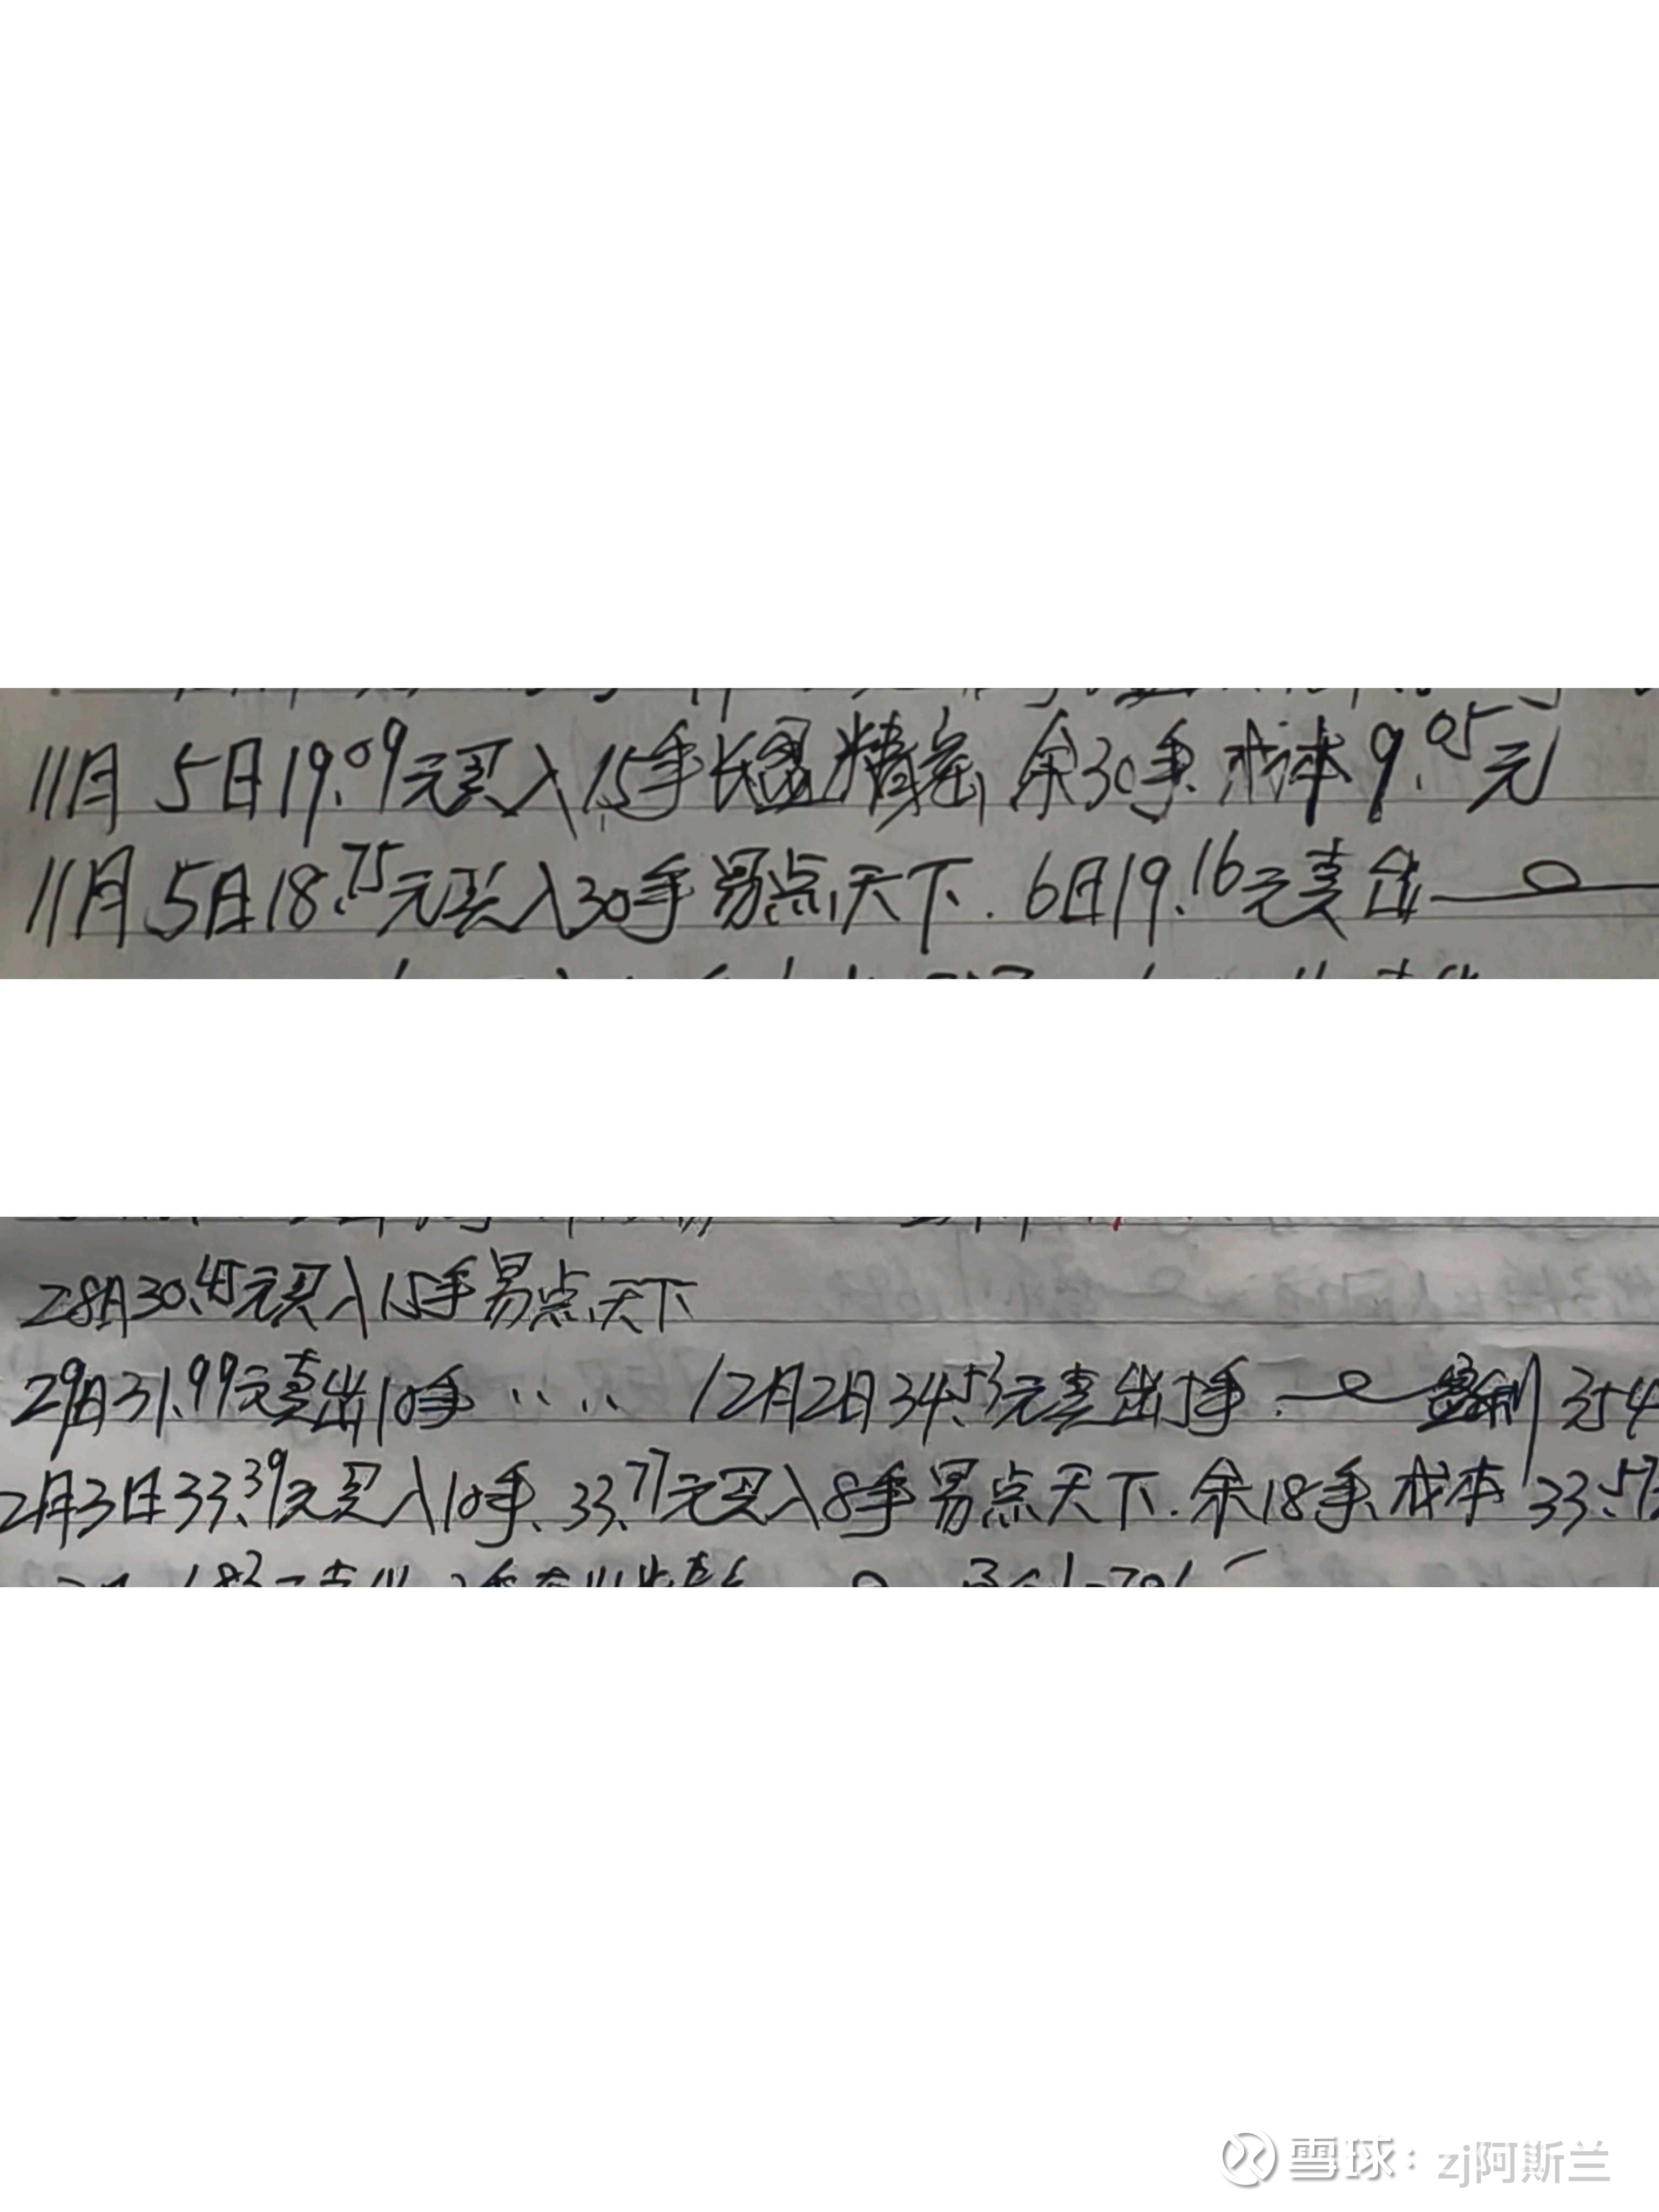 11月5日19.09元买入15手长盈精密,余30手.成本9.05元
11月5日18.75元买入30手易点天下.6日19.16元卖出
28日30.45元买入15手易点天下
29日31.99元卖出10手 〃 〃 12月2日34.53元卖出5手. 盈利354
2月3日33.39元买入10手、33.77元买入8手易点天下.余18手.成本33.57
雪球:zj阿斯兰